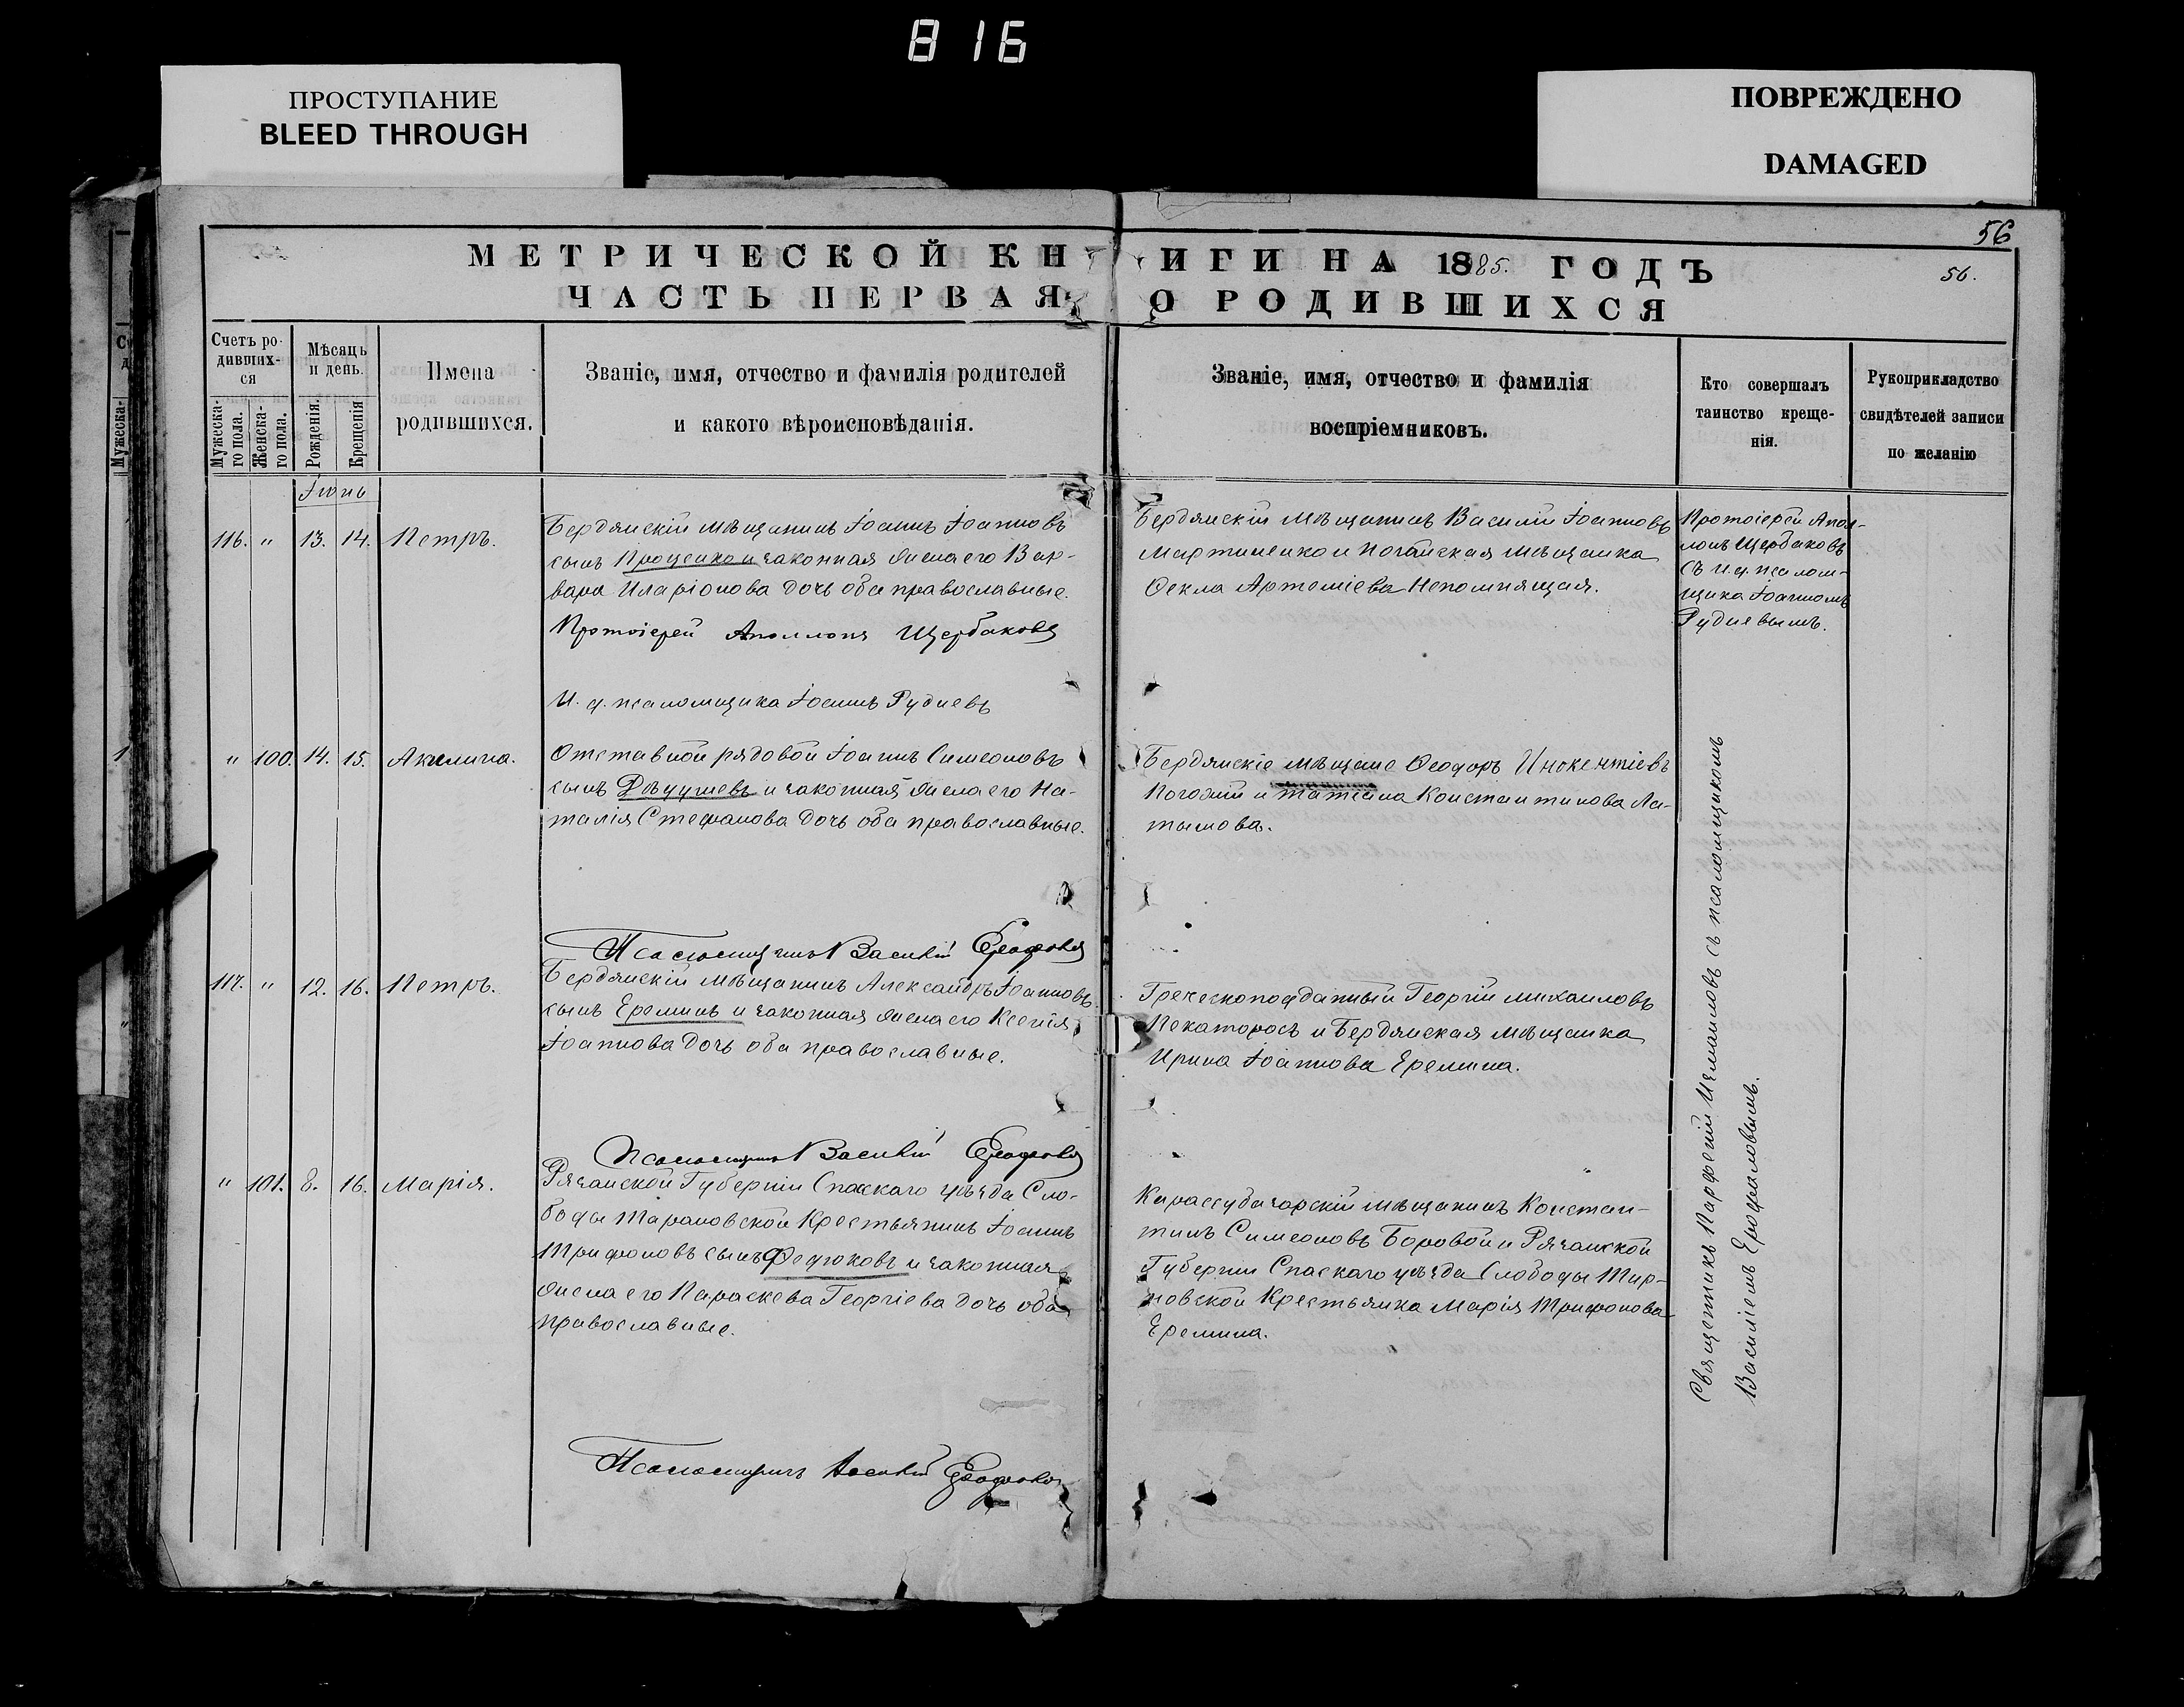 816
ПРОСТУПАНИЕ
BLEED THROUGH
ПОВРЕЖДЕНО
DAMAGED
56
МЕТРИЧЕСКОЙ КНИГИ НА 1885. ГОДЪ
56.
ЧАСТЬ ПЕРВАЯ О РОДИВШИХСЯ
Счетъ ро-
дивших-
ся
Мужеска-
го пола.
Женска-
го пола.
Мѣсяцъ
и день.
Рожденія.
Крещенія
Имена
родившихся.
Званіе, имя, отчество и фамилія родителей
и какого вѣроисповѣданія.
Званіе, имя, отчество и фамилія
воспріемниковъ.
Кто совершалъ
таинство креще-
нія.
Рукоприкладство
свидѣтелей записи
по желанію
Іюнь
116. " 13. 14. Петръ.
Бердянскій мѣщанинъ Іоаннъ Іоанновъ
сынъ Проценко и законная жена его Вар-
вара Иларіонова дочь оба православные.
Протоіерей Аполлонъ Щербаковъ
И. д. псаломщика Іоаннъ Рудневъ
Бердянскій мѣщанинъ Василій Іоанновъ
Мартиненко и Ногайская мѣщанка
Ѳекла Артеміева Непомнящая.
Протоіерей Апол-
лонъ Щербаковъ
съ и. д. псалом-
щика Іоанномъ
Рудневымъ.
" 100. 14. 15. Акилина.
Отставной рядовой Іоаннъ Симеоновъ
сынъ и законная жена его На-
талія Стефанова дочь оба православные.
Псаломщикъ Василій Ерофаловъ
Бердянскіе мѣщане Ѳеодоръ Инокентіевъ
Погожій и Татіана Константинова Ла-
тышова.
117. " 12. 16. Петръ.
Бердянскій мѣщанинъ Александръ Іоанновъ
сынъ Ереминъ и законная жена его Ксенія
Іоаннова дочь оба православные.
Псаломщикъ Василій Ерофаловъ
Грекескоподданный Георгій Михаиловъ
Пекаторосъ и Бердянская мѣщанка
Ирина Іоаннова Еремина.
" 101. 8. 16. Марія.
Рязанской Губерніи Спаскаго уѣзда Сло-
боды Тарановской Крестьянинъ Іоаннъ
Трифоновъ сынъ Федюковъ и законная
жена его Параскева Георгіева дочь оба
православные.
Псаломщикъ Василій Ерофаловъ
Карассубазарскій мѣщанинъ Констан-
тинъ Симеоновъ Боровой и Рязанской
Губерніи Спаскаго уѣзда Слободы Тир-
новской Крестьянка Марія Трифонова
Еремина.
Священникъ Парфеній Измаиловъ съ псаломщикомъ
Василіемъ Ерофаловымъ.